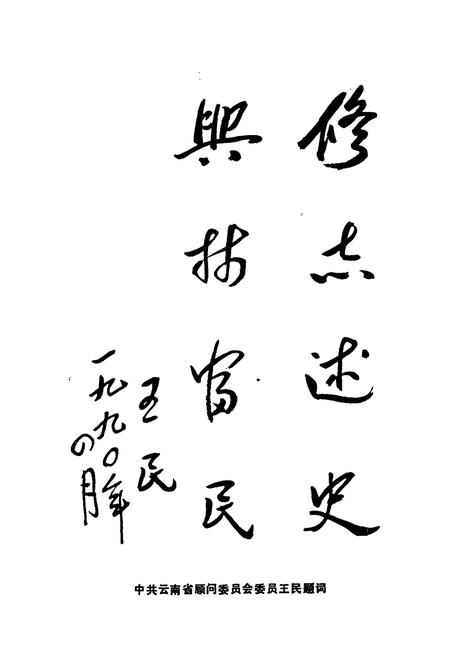 修志述史
興林富民
王民
一九九〇年
四月
中共云南省顾问委员会委员王民题词